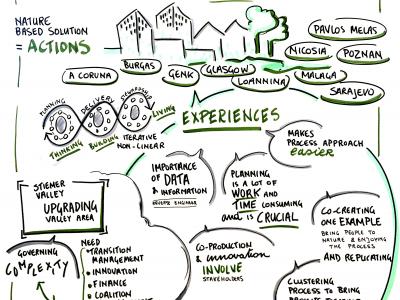 NATURE
BASED SOLUTION
= ACTIONS
PAVLOS MELAS
NICOSIA
POZNAN
BURGAS
GLASGOW
A CORUNA
GENK
IOANNINA
MALAGA
SARAJEVO
PLANNING
DELIVERY
STEWARDSHIP
LIVING
THINKING
BUILDING
ITERATIVE
NON-LINEAR
EXPERIENCES
MAKES
PROCESS APPROACH
easier
IMPORTANCE
OF DATA
& INFORMATION
REVERSE ENGINEER
PLANNING
IS A LOT OF
WORK AND
TIME CONSUMING
and is CRUCIAL
STIEMER
VALLEY
UPGRADING
VALLEY AREA
CO-CREATING
ONE EXAMPLE
BRING PEOPLE TO
NATURE & ENJOYING
THE PROCESS
AND REPLICATING
GOVERNING
COMPLEXITY
NEED
• TRANSITION
MANAGEMENT
• INNOVATION
• FINANCE
• COALITION
CO-PRODUCTION
& innovation
INVOLVE
STAKEHOLDERS
CLUSTERING
PROCESS TO BRING